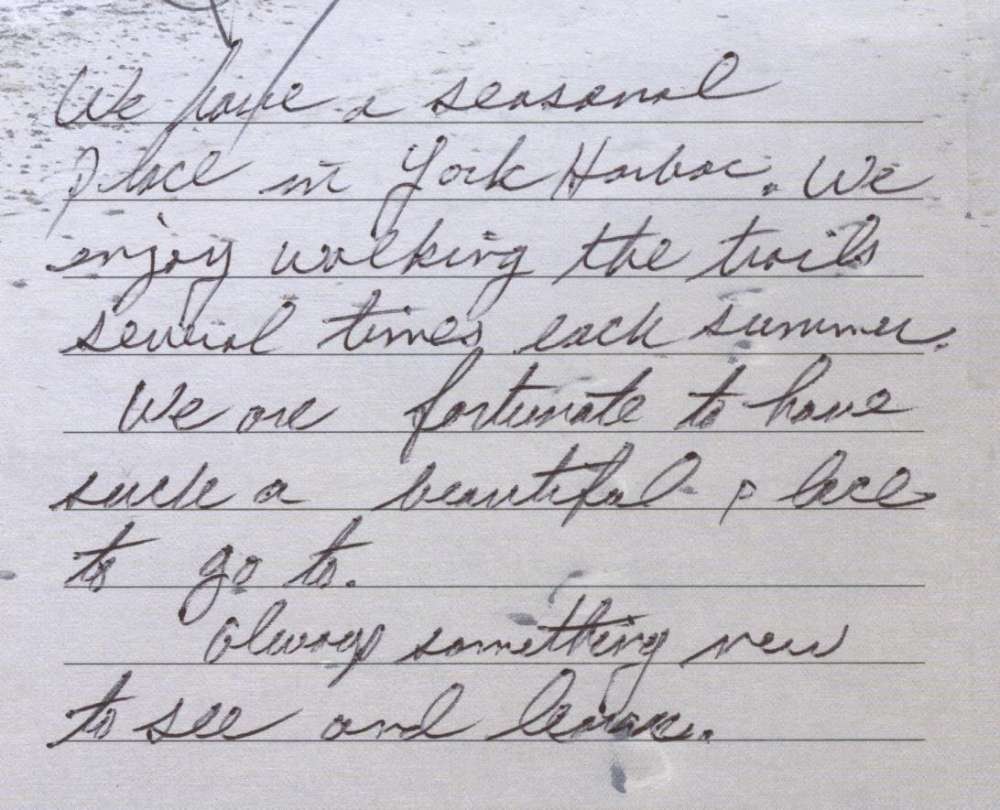 We have a seasonal
place in York Harbor. We
enjoy walking the trails
several times each summer.
We are fortunate to have
such a beautiful place
to go to.
Always something new
to see and learn.